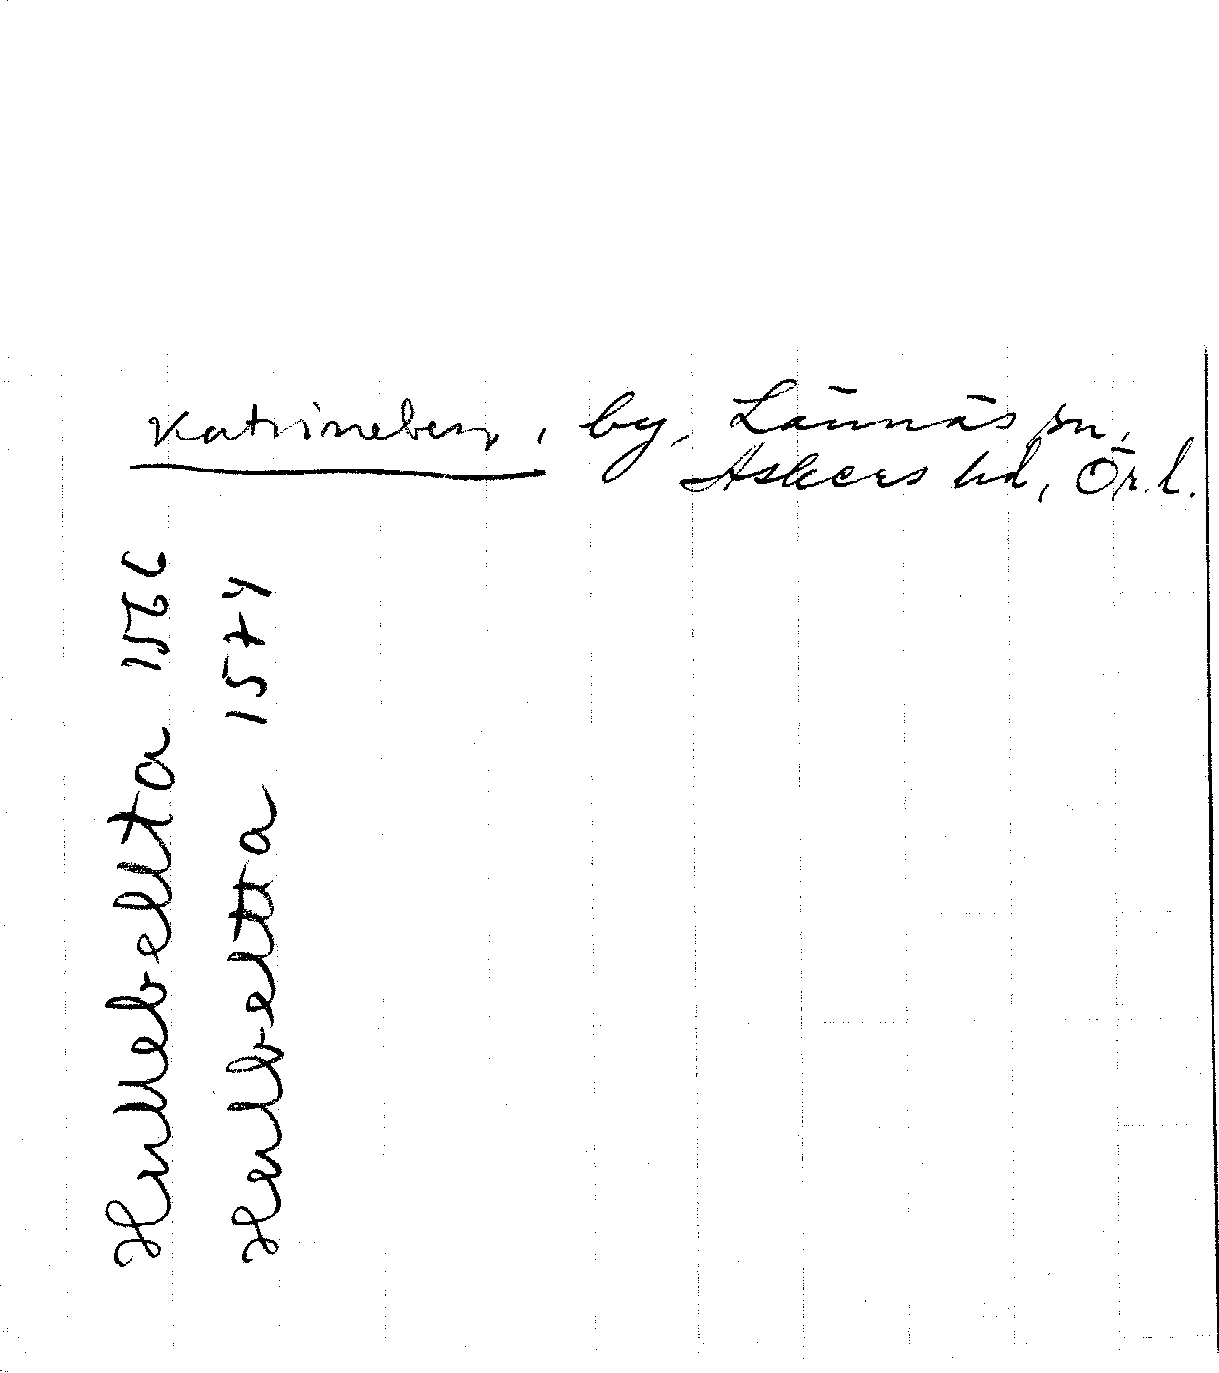 Katrineberg, by, Lännäs sn,
Askers hd, Ör. l.
Hullebeltta 1566
Hulbeltta 1574